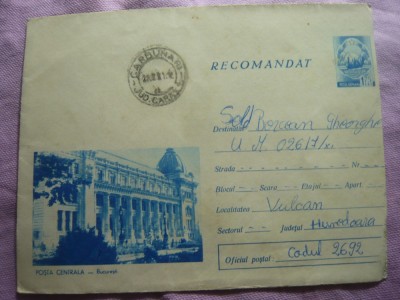 RECOMANDAT
CĂRBUNARI
JUD. CARAȘ
Sold
Destinatar Gheorghe
U M 02617/x
Strada Nr
Blocul - - Scara - - Etajul - - Apart
Localitatea Vulcan
Sectorul - - Județul Hunedoara
Oficiul poștal: Codul 2692
POȘTA CENTRALĂ — București